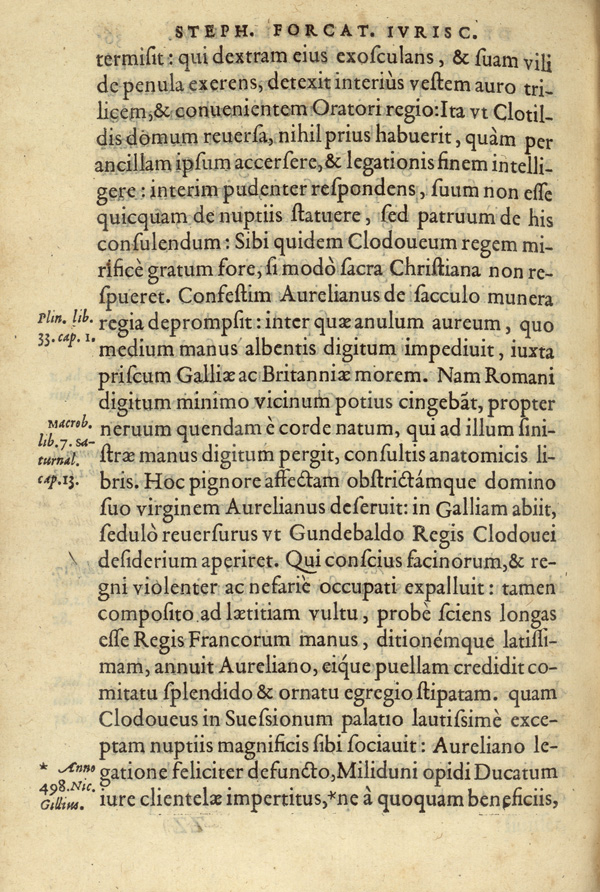 STEPH. FORCAT. IVRISC.
termiſit: qui dextram eius exoſculans, & ſuam vili
de penula exerens, detexit interiùs veſtem auro tri-
licem, & conuenientem Oratori regio: Ita vt Clotil-
dis domum reuerſa, nihil prius habuerit, quàm per
ancillam ipſum accerſere, & legationis finem intelli-
gere: interim pudenter reſpondens, ſuum non eſſe
quicquam de nuptiis ſtatuere, ſed patruum de his
conſulendum: Sibi quidem Clodoueum regem mi-
rificè gratum fore, ſi modò ſacra Chriſtiana non re-
ſpueret. Confeſtim Aurelianus de ſacculo munera
Plin. lib. regia deprompſit: inter quæ anulum aureum, quo
33. cap. 1. medium manus albentis digitum impediuit, iuxta
priſcum Galliæ ac Britanniæ morem. Nam Romani
digitum minimo vicinum potius cingebãt, propter
Macrob. neruum quendam è corde natum, qui ad illum ſini-
lib. 7. Sa- ſtræ manus digitum pergit, conſultis anatomicis li-
turnal.
cap. 13. bris. Hoc pignore affectam obſtrictámque domino
ſuo virginem Aurelianus deſeruit: in Galliam abiit,
ſedulò reuerſurus vt Gundebaldo Regis Clodouei
deſiderium aperiret. Qui conſcius facinorum, & re-
gni violenter ac nefariè occupati expalluit: tamen
compoſito ad lætitiam vultu, probè ſciens longas
eſſe Regis Francorum manus, ditionémque latiſſi-
mam, annuit Aureliano, eíque puellam credidit co-
mitatu ſplendido & ornatu egregio ſtipatam. quam
Clodoueus in Sueſsionum palatio lautiſsimè exce-
ptam nuptiis magnificis ſibi ſociauit: Aureliano le-
* Anno gatione feliciter defuncto, Miliduni opidi Ducatum
498. Nic. iure clientelæ impertitus, *ne à quoquam beneficiis,
Gillius.